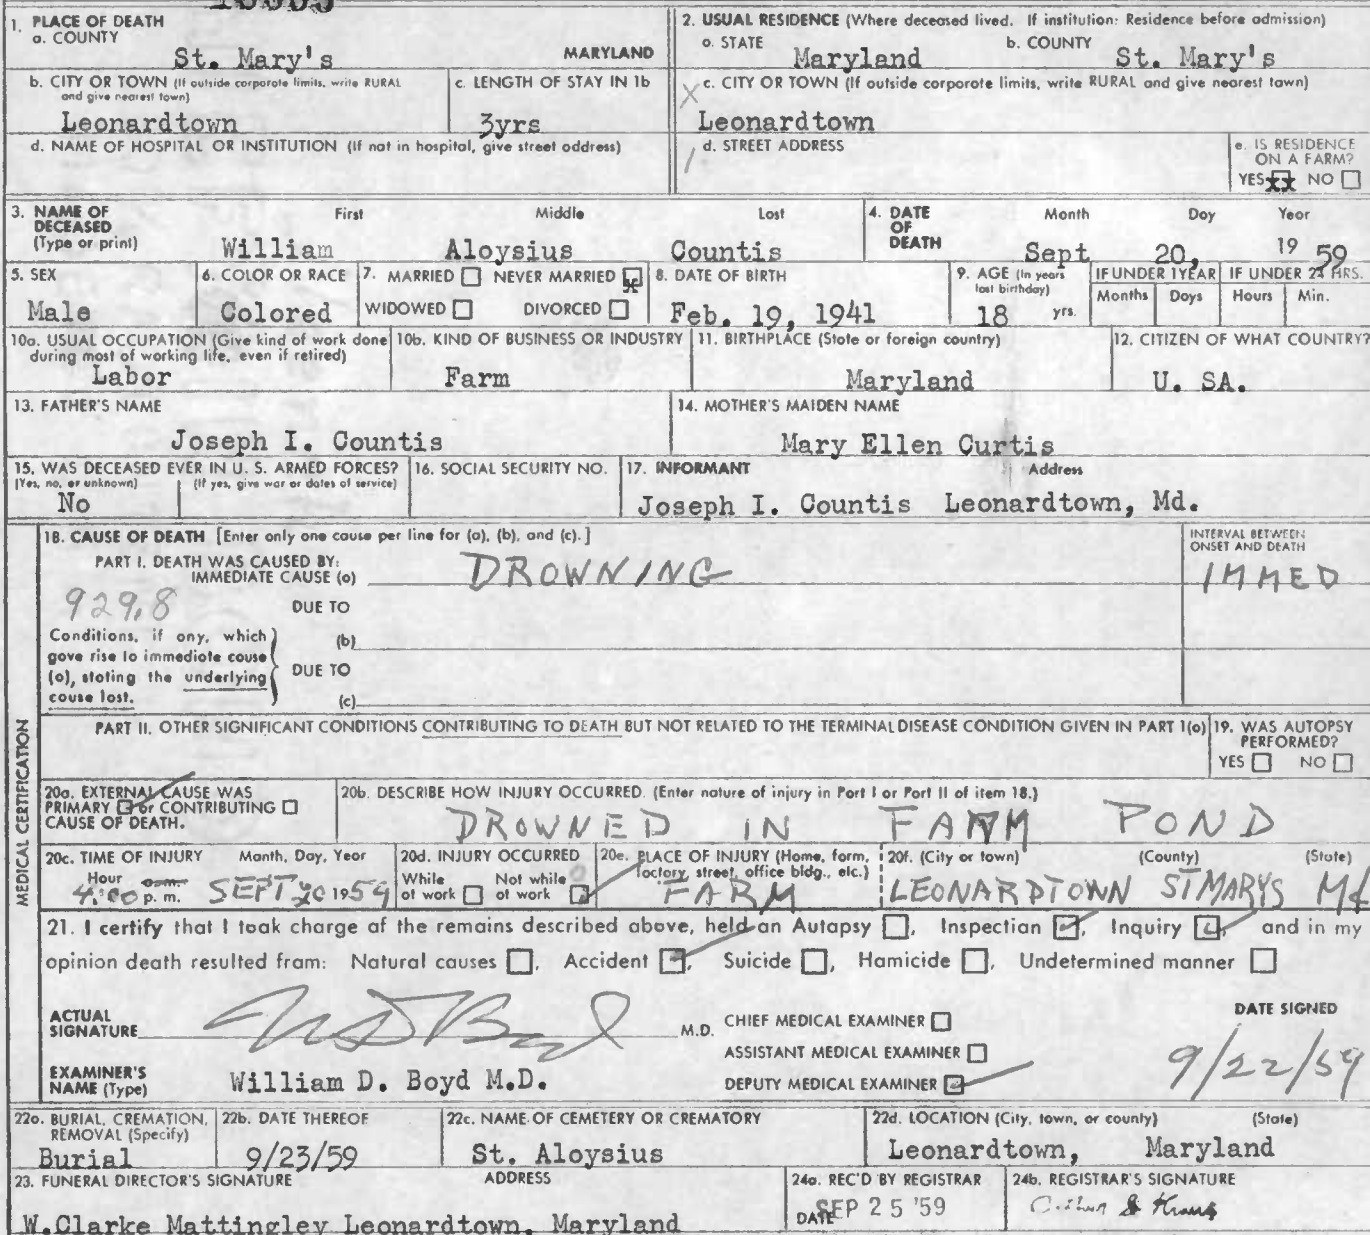 1. PLACE OF DEATH
a. COUNTY
St. Mary's MARYLAND
2. USUAL RESIDENCE (Where deceased lived. If institution: Residence before admission)
a. STATE Maryland b. COUNTY St. Mary's
b. CITY OR TOWN (If outside corporate limits, write RURAL and give nearest town)
Leonardtown
c. LENGTH OF STAY IN 1b
3yrs
c. CITY OR TOWN (If outside corporate limits, write RURAL and give nearest town)
Leonardtown
d. NAME OF HOSPITAL OR INSTITUTION (If not in hospital, give street address)
d. STREET ADDRESS
e. IS RESIDENCE
ON A FARM?
YES xx NO
3. NAME OF
DECEASED
(Type or print)
First Middle Last
William Aloysius Countis
4. DATE
OF
DEATH
Month Day Year
Sept 20, 19 59
5. SEX
Male
6. COLOR OR RACE
Colored
7. MARRIED NEVER MARRIED x
WIDOWED DIVORCED
8. DATE OF BIRTH
Feb. 19, 1941
9. AGE (In years
last birthday)
18 yrs.
IF UNDER 1 YEAR
Months Days
IF UNDER 24 HRS.
Hours Min.
10a. USUAL OCCUPATION (Give kind of work done
during most of working life, even if retired)
Labor
10b. KIND OF BUSINESS OR INDUSTRY
Farm
11. BIRTHPLACE (State or foreign country)
Maryland
12. CITIZEN OF WHAT COUNTRY?
U. SA.
13. FATHER'S NAME
Joseph I. Countis
14. MOTHER'S MAIDEN NAME
Mary Ellen Curtis
15. WAS DECEASED EVER IN U. S. ARMED FORCES?
(Yes, no, or unknown) (If yes, give war or dates of service)
No
16. SOCIAL SECURITY NO.
17. INFORMANT Address
Joseph I. Countis Leonardtown, Md.
18. CAUSE OF DEATH [Enter only one cause per line for (a), (b), and (c).]
PART I. DEATH WAS CAUSED BY:
IMMEDIATE CAUSE (a) DROWNING
INTERVAL BETWEEN
ONSET AND DEATH
IMMED
929.8
DUE TO
Conditions, if any, which
gave rise to immediate cause
(a), stating the underlying
cause last.
(b)
DUE TO
(c)
MEDICAL CERTIFICATION
PART II. OTHER SIGNIFICANT CONDITIONS CONTRIBUTING TO DEATH BUT NOT RELATED TO THE TERMINAL DISEASE CONDITION GIVEN IN PART I(a)
19. WAS AUTOPSY
PERFORMED?
YES NO
20a. EXTERNAL CAUSE WAS
PRIMARY or CONTRIBUTING
CAUSE OF DEATH.
20b. DESCRIBE HOW INJURY OCCURRED. (Enter nature of injury in Part I or Part II of item 18.)
DROWNED IN FARM POND
20c. TIME OF INJURY Month, Day, Year
Hour a.m.
4:00 p. m. SEPT 20 1959
20d. INJURY OCCURRED
While Not while
at work at work
20e. PLACE OF INJURY (Home, farm,
factory, street, office bldg., etc.)
FARM
20f. (City or town) (County) (State)
LEONARDTOWN ST MARYS Md
21. I certify that I took charge of the remains described above, held an Autopsy , Inspection , Inquiry , and in my
opinion death resulted from: Natural causes , Accident , Suicide , Homicide , Undetermined manner
ACTUAL
SIGNATURE M.D.
CHIEF MEDICAL EXAMINER
ASSISTANT MEDICAL EXAMINER
DEPUTY MEDICAL EXAMINER
DATE SIGNED
9/22/59
EXAMINER'S
NAME (Type) William D. Boyd M.D.
22a. BURIAL, CREMATION,
REMOVAL (Specify)
Burial
22b. DATE THEREOF
9/23/59
22c. NAME OF CEMETERY OR CREMATORY
St. Aloysius
22d. LOCATION (City, town, or county) (State)
Leonardtown, Maryland
23. FUNERAL DIRECTOR'S SIGNATURE ADDRESS
W.Clarke Mattingley Leonardtown, Maryland
24a. REC'D BY REGISTRAR
DATE SEP 25 '59
24b. REGISTRAR'S SIGNATURE